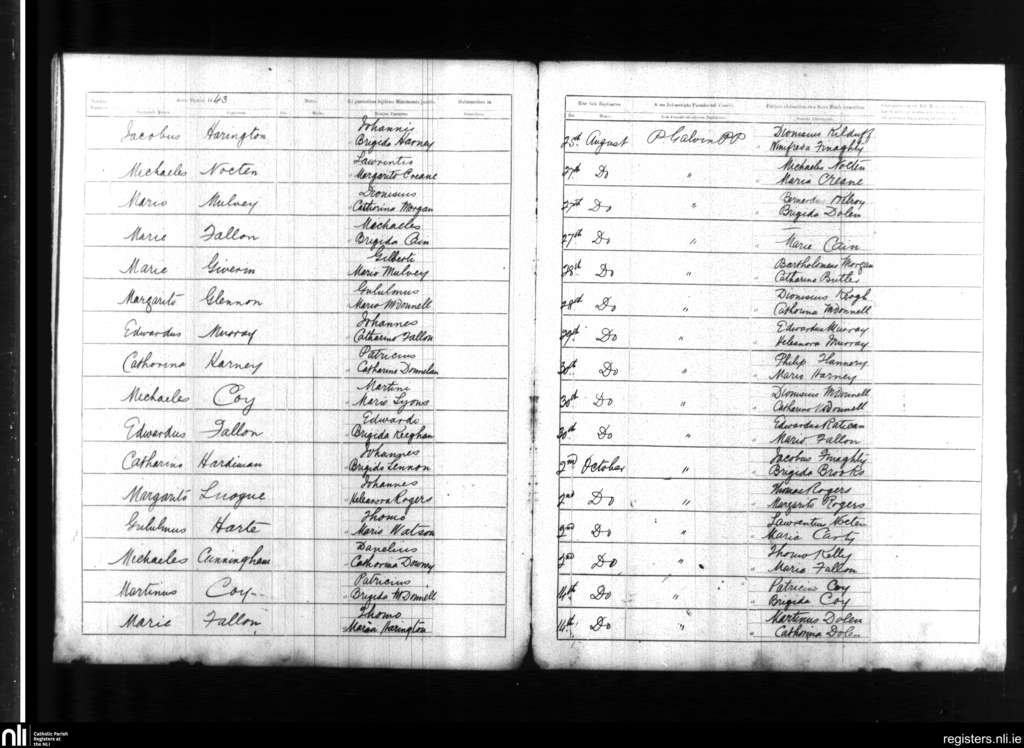 43
Jacobus Harington Johannis
Brigida Harney 25th August P Galvin PP Dionisius Kilduff
Winifreda Finaghty
Michaeles Nocten Lawrentis
Margarito Creane 27th Do " Michaeles Nocten
Maria Creane
Maria Mulvey Dionisius
Catharina Morgan 27th Do " Bernardus
Brigida Dolen
Marie Fallon Michaeles
Brigida Cain 27th Do " —
Marie Cain
Marie Giverin Gilberti
Maria Mulvey 28th Do " Bartholomeus Morgan
Catharina Butler
Margarito Glennon Gululmus
Maria McDonnell 28th Do " Dionisius Keogh
Catharina McDonnell
Edwardus Murray Johannes
Catharina Fallon 29th Do " Edwardus Murray
Heleanora Murray
Catharina Harney Patricius
Catharina Donnelan 30th Do " Philip Flannery
Maria Harney
Michaeles Coy Martini
Maria Lyons 30th Do " Dionisius McDonnell
Catharina McDonnell
Edwardus Fallon Edwardi
Brigida Keeghan 30th Do " Edwardus
Maria Fallon
Catharina Hardiman Johannes
Brigida Lennon 2nd October " Jacobus Finaghty
Brigida Brooks
Margarito Johannes
Heleanora Rogers 2nd Do " Thomas Rogers
Margarito Rogers
Gululmus Harte Thoms
Maria Watson 2nd Do " Lawrentius
Maria Carty
Michaeles Cunningham Danelius
Catharina Downey 2nd Do " Thoms Kelly
Maria Fallon
Martinus Coy Patricius
Brigida McDonnell 14th Do " Patricius Coy
Brigida Coy
Marie Fallon Thoms
Marian Harington 14th Do " Martinus Dolen
Catharina Dolen
nli Catholic Parish
Registers at
the NLI
registers.nli.ie